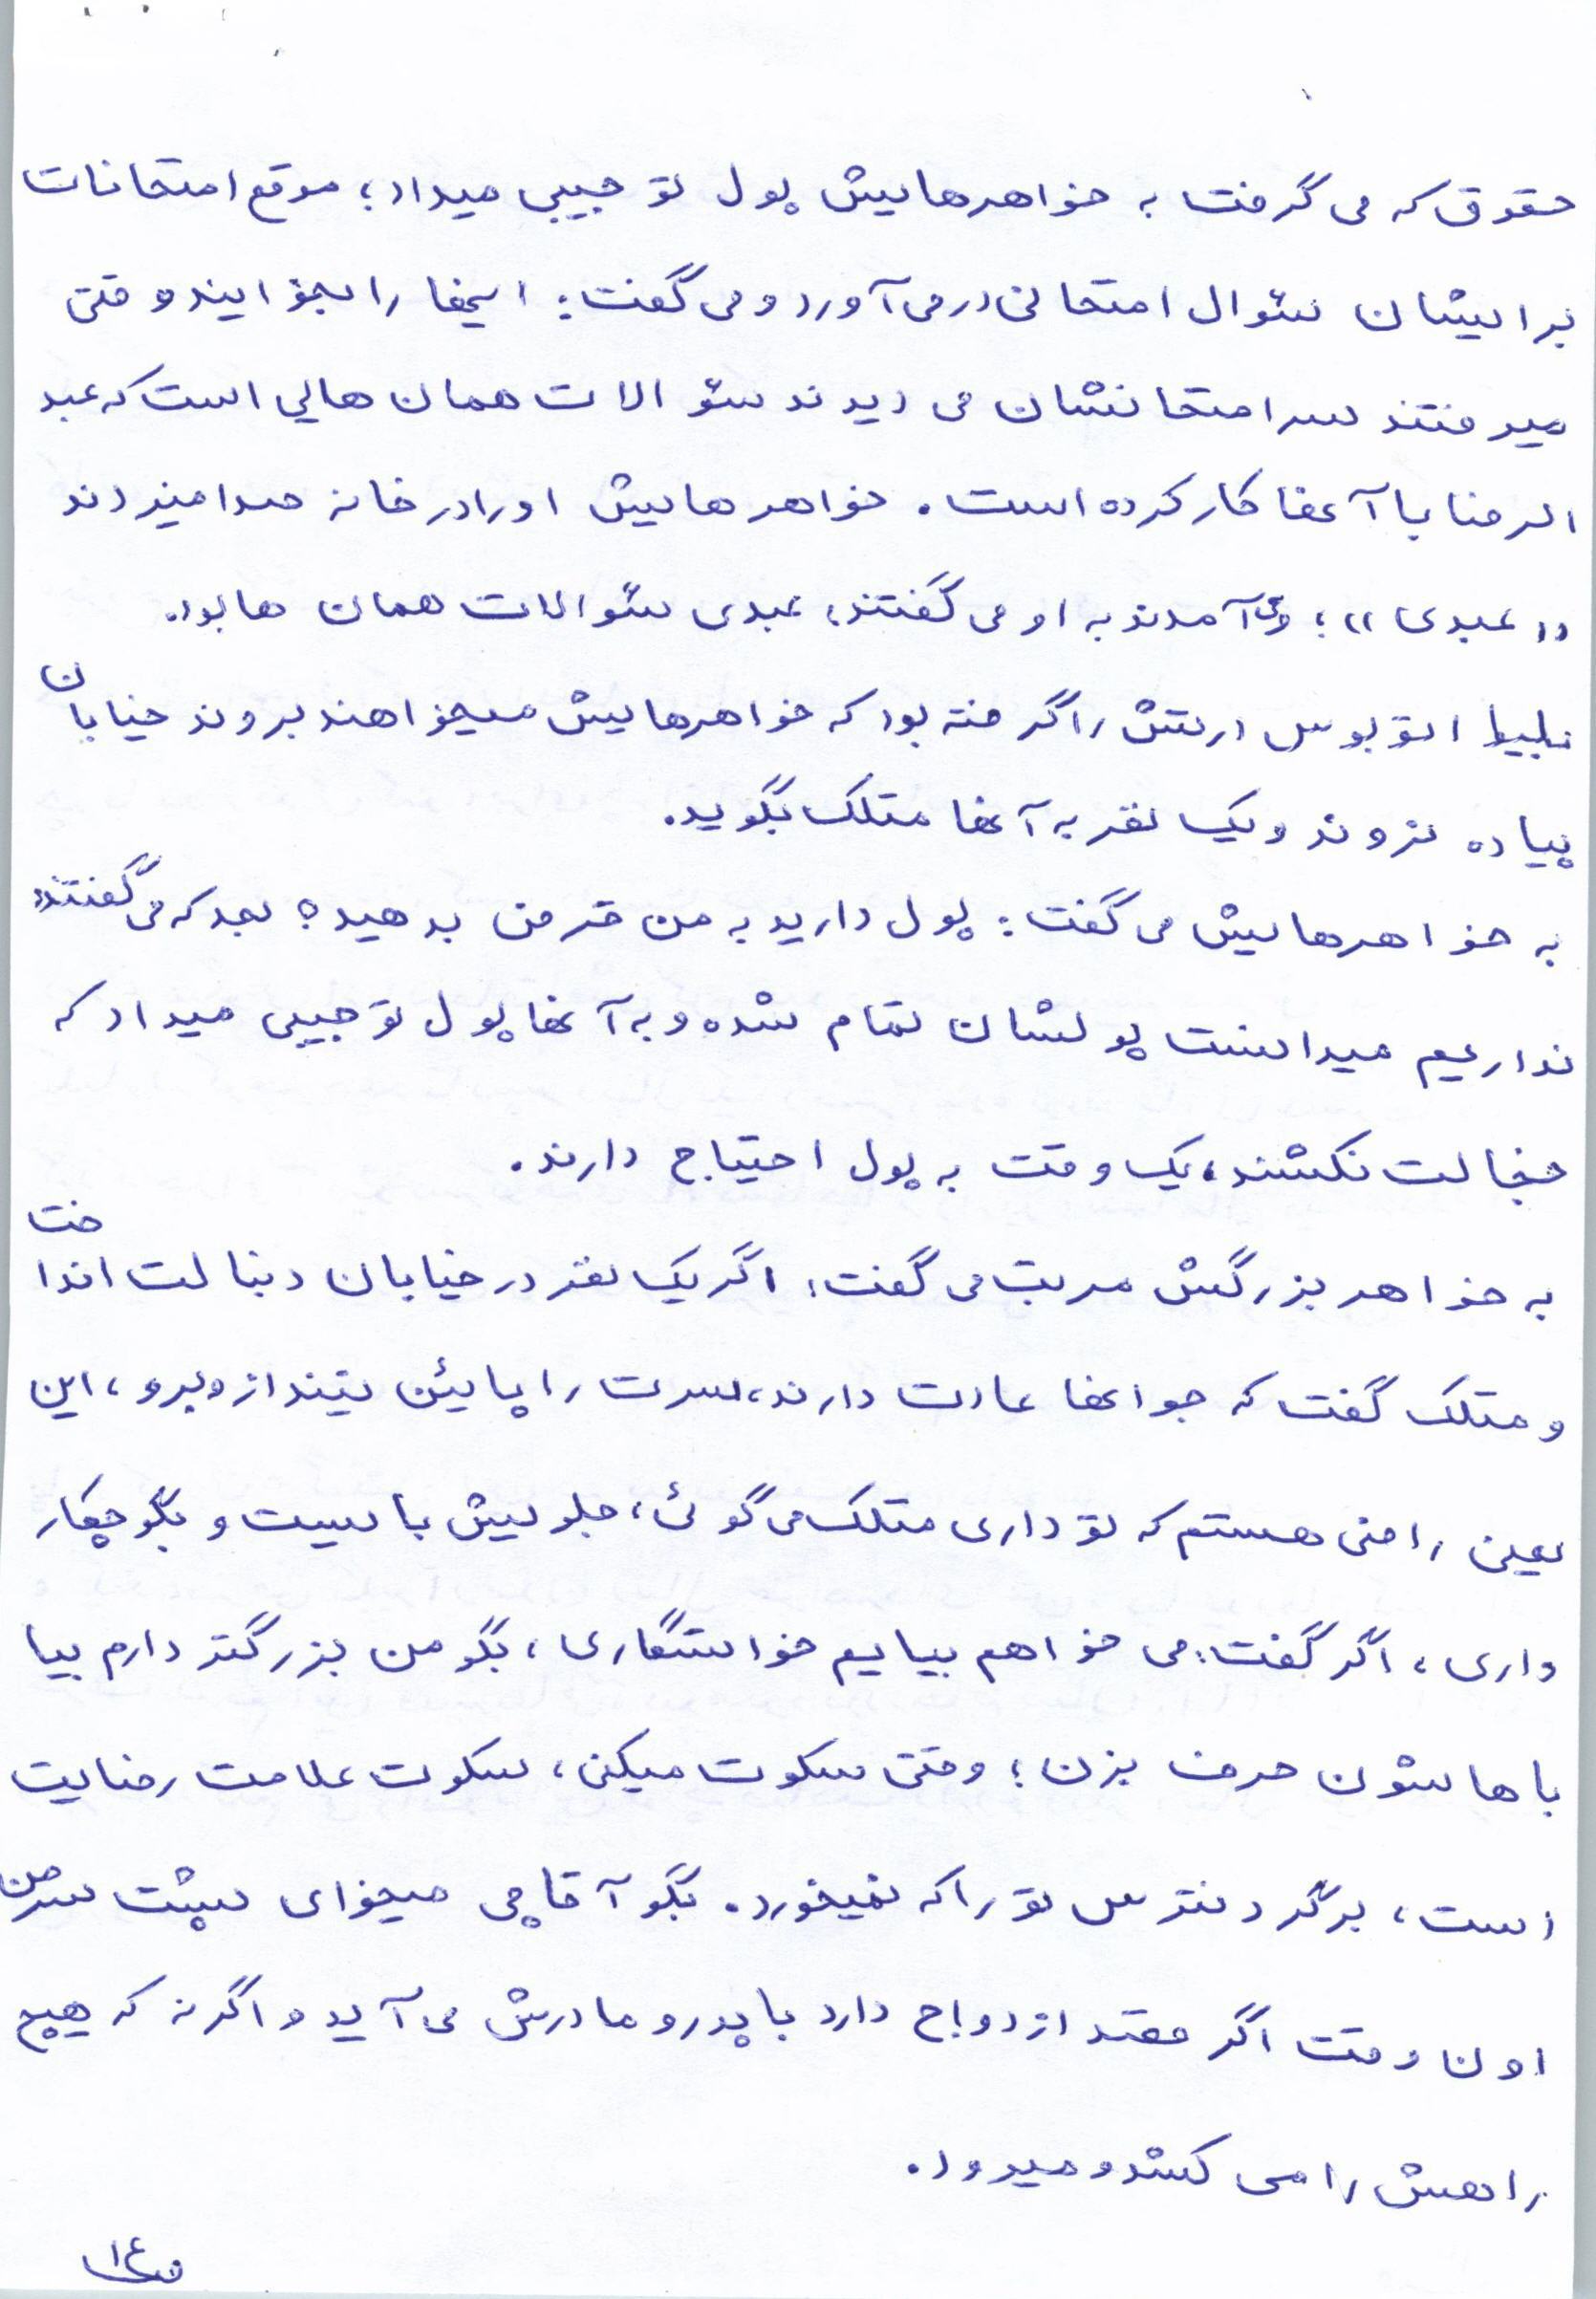 حقوق که می گرفت به خواهرهایش پول تو جیبی میداد؛ موقع امتحانات
برایشان سئوال امتحانی درمی آورد و می گفت: اینها را بخوانید و وقتی
میرفتند سر امتحانشان می دیدند سئوالات همان هایی است که عبد
الرضا با آنها کار کرده است. خواهرهایش او را در خانه صدا میزدند
«عبدی»؛ می آمدند به او می گفتند: عبدی سئوالات همان ها بود.
بلیط اتوبوس ارتش را گرفته بود که خواهرهایش میخواهند بروند خیابان
پیاده نروند و یک نفر به آنها متلک بگوید.
به خواهرهایش می گفت: پول دارید به من قرض بدهید؟ بعد که می گفتند:
نداریم میدانست پولشان تمام شده و به آنها پول تو جیبی میداد که
خجالت نکشند، یک وقت به پول احتیاج دارند.
به خواهر بزرگش مرتب می گفت: اگر یک نفر در خیابان دنبالت انداخت
و متلک گفت که جوانها عادت دارند، سرت را پایئن نینداز و برو، این
یعنی راضی هستم که تو داری متلک می گوئی، جلویش بایست و بگو چکار
داری، اگر گفت: می خواهم بیایم خواستگاری، بگو من بزرگتر دارم بیا
باهاشون حرف بزن؛ وقتی سکوت میکنی، سکوت علامت رضایت
است، برگرد نترس تو را که نمیخورد. بگو آقا چی میخوای پشت سر من
اون وقت اگر قصد ازدواج دارد با پدر و مادرش می آید و اگر نه که هیچ
راهش را می کشد و میرود.
ص۱۴